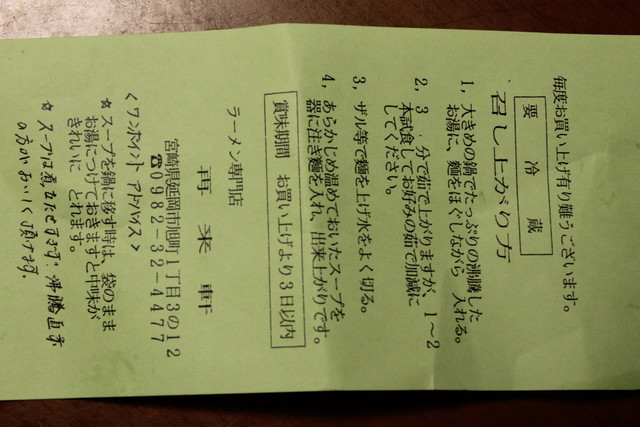 毎度お買い上げ有り難うございます。
要冷蔵
召し上がり方
1，大きめの鍋でたっぷりの沸騰した
お湯に、麺をほぐしながら 入れる。
2，3 分で茹で上がりますが、1～2
本試食してお好みの茹で加減に
してください。
3，ザル等で麺を上げ水をよく切る。
4，あらかじめ温めておいたスープを
器に注ぎ麺を入れ、出来上がりです。
賞味期間 お買い上げより3日以内
ラーメン専門店
再来軒
宮崎県延岡市旭町1丁目3の12
☎0982-32-4477
＜ワンポイント アドバイス＞
☆スープを鍋に移す時は、袋のまま
お湯につけておきますと中味が
きれいに とれます。
☆スープは煮立たせすぎず・沸騰直前
の方がおいしく頂けます。